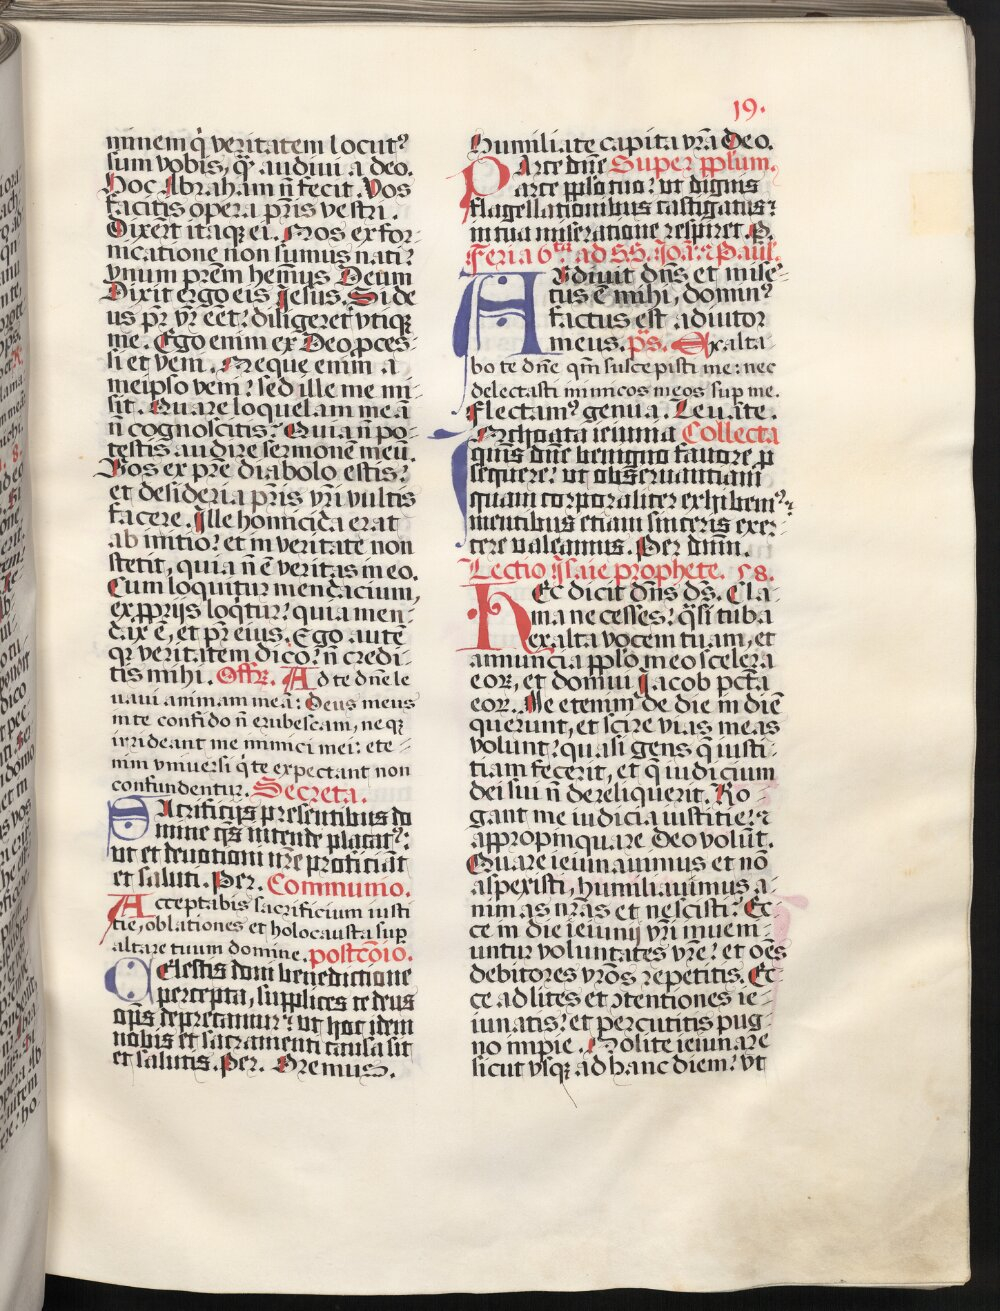 19.
minem q̇ veritatem locutꝰ
sum vobis, qȝ audiui a deo.
Hoc Abraham n̄ fecit. Vos
facitis opera pr̄is vestri.
Dixer̄t itaqȝ ei. Nos ex for-
nicatione non sumus nati:
vnum prēm hem̄us Deum
Dixit ergo eis Jesus. Si de
us pr̄ vr̄ eēt: diligeret̄ vtiqȝ
me. Ego enim ex Deo ꝓces-
si et veni. Neque enim a
meipso veni: sed ille me mi
sit. Quare loquelam meā
n̄ cognoscitis? Quia n̄ po-
testis audire sermonē meū.
Vos ex prē diabolo estis:
et desideria pr̄is vr̄i vultis
facere. Ille homicida erat
ab initio: et in veritate non
stetit, quia n̄ ē veritas in eo.
Cum loquitur mendacium,
ex ꝓprijs loq̄tur: quia men-
dax ē, et pr̄ eius. Ego autē
qȝ veritatem dico: n̄ credi-
tis mihi. Offꝛ. Ad te dn̄e le
uaui animam meā: Deus meus
in te confido n̄ erubescam, neqȝ
irrideant me inimici mei: ete-
nim vniuersi q̇ te expectant non
confundentur. Secreta.
SAcrificijs presentibus do
mine qs̄ intende placatꝰ:
ut et deuotioni nr̄e proficiāt
et saluti. Per. Communio.
Acceptabis sacrificium iusti
tie, oblationes et holocausta sup̄
altare tuum domine. postcōio.
CElestis doni benedictione
percepta, supplices te deus
oп̄s deprecamur: ut hoc idem
nobis et sacramenti causa sit
et salutis. Per. Oremus.
Humiliate capita vr̄a Deo.
PArce dn̄e Super pp̄lum.
arce pp̄lo tuo: ut dignis
flagellationibus castigatus:
in tua miseratione respiret. P.
Feria 6ta ad SS. Joā. ⁊ Paul.
AUdiuit dn̄s et mise-
tus ē mihi, dominꝰ
factus est adiutor
meus. ps̄. Exalta
bo te dn̄e qm̄ suscepisti me: nec
delectasti inimicos meos sup̄ me.
Flectamꝰ genua. Leuāte.
INchoata ieiunia Collecta
quis̄ dn̄e benigno fauore p
sequere: ut obseruantiam
quam corporaliter exhibemꝰ:
mentibus etiam sinceris exer-
cere valeamus. Per dn̄m.
Lectio Jsaie prophete. 58.
HEc dicit dn̄s ds̄. Cla
ma ne cesses: q̄si tuba
exalta vocem tuam, et
annuncia pp̄lo meo scelera
eoꝝ, et domui Jacob pctā
eoꝝ. Me etenim de die in diē
querunt, et scire vias meas
volunt: quasi gens q̄ iusti-
tiam fecerit, et q̄ iudicium
dei sui n̄ dereliquerit. Ro
gant me iudicia iustitie: ⁊
appropinquare Deo volūt.
Quare ieiunauimus et nō
aspexisti, humiliauimus a-
nimas nr̄as et nescisti? Ec-
ce in die ieiunij vr̄i inueni-
untur voluntates vr̄e: et oēs
debitores vr̄os repetitis. Ec
ce ad lites et ↄtentiones ie-
iunatis: et percutitis pug-
no impie. Nolite ieiunare
sicut vsqȝ ad hanc diem: vt